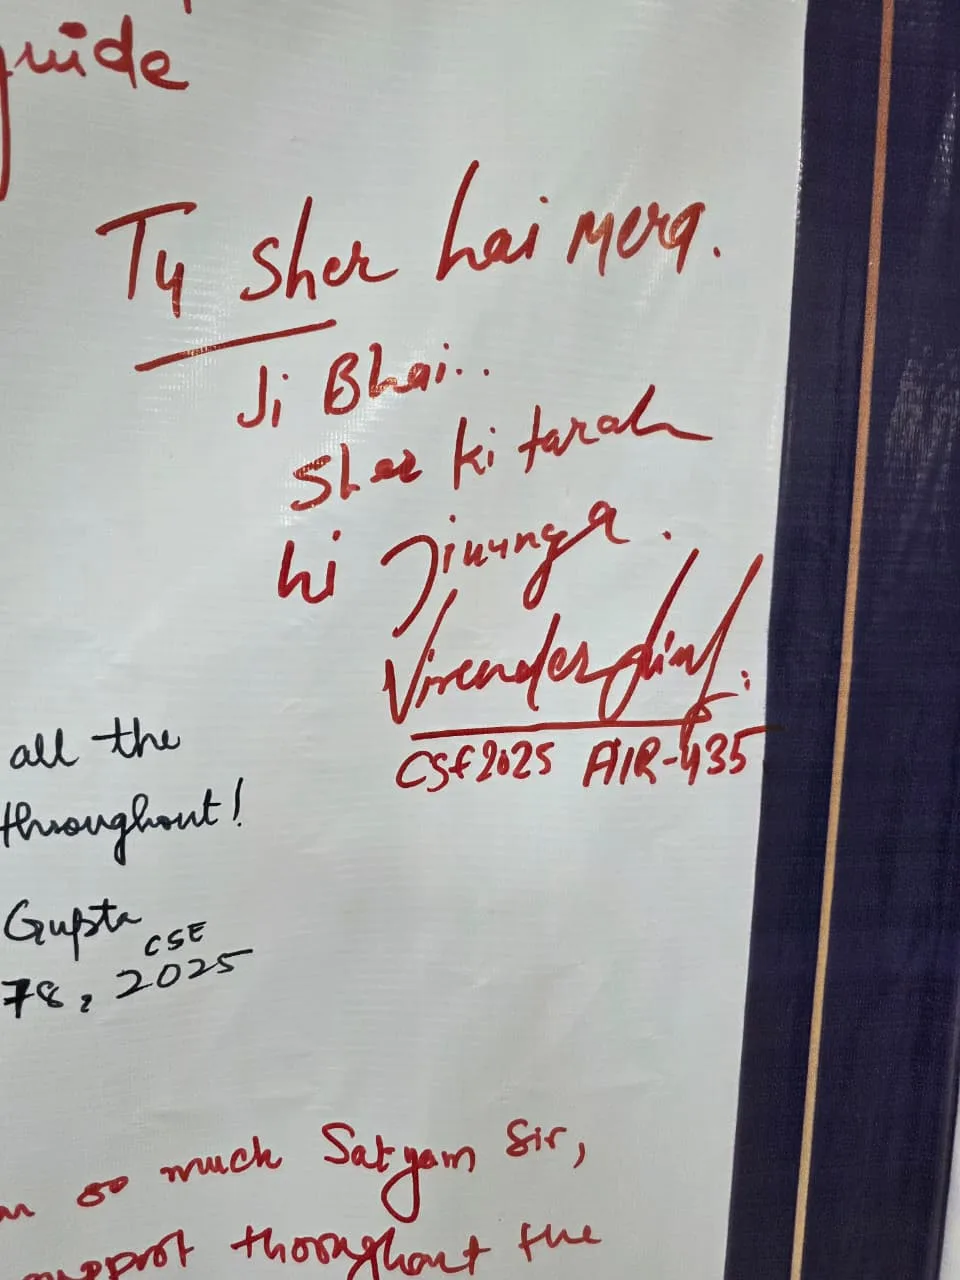 guide
Ty Sher hai Merq.
Ji Bhai..
Sher ki tarah
hi Jiunga.
Virender
CSE 2025 AIR-435
all the
throughout!
Gupta
CSE
78, 2025
so much Satyam Sir,
support thoroughout the